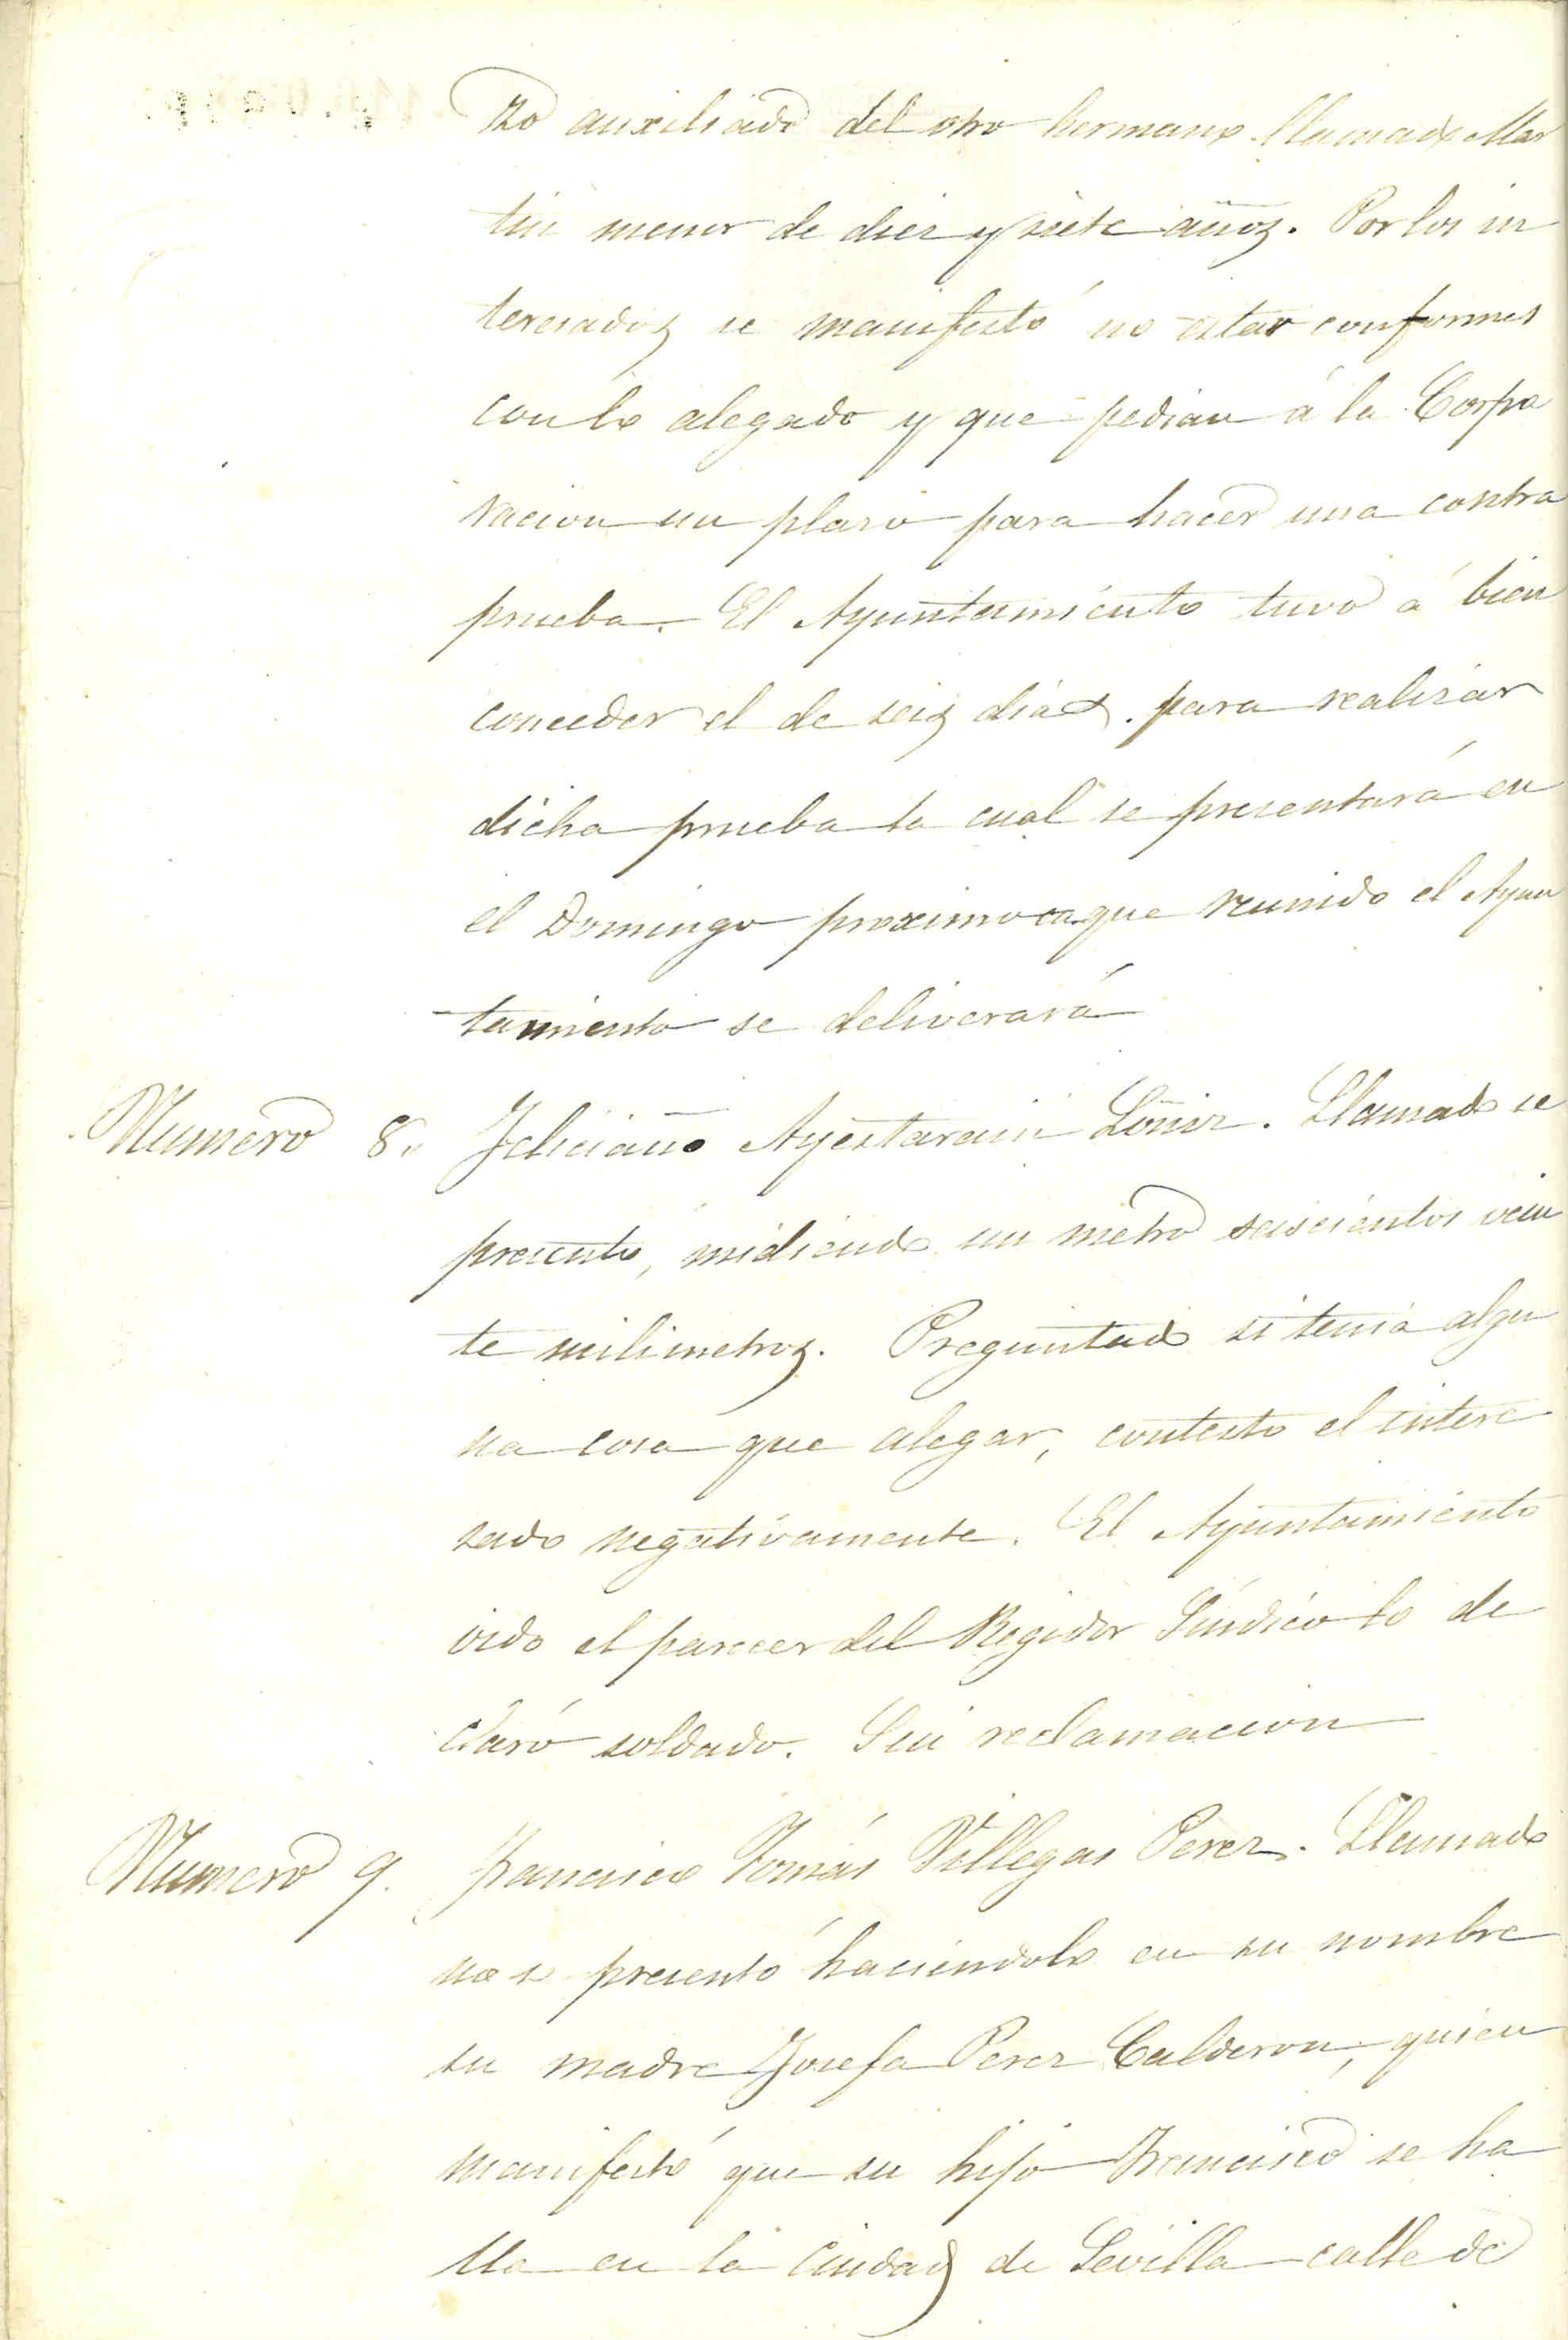 no auxiliado del otro hermano llamado Mar
tin menor de diez y siete años. Por los in
teresados se manifestó no estar conformes
con lo alegado y que pedian á la Corpo
racion un plazo para hacer una contra
prueba. El Ayuntamiento tuvo á bien
conceder el de seis dias para realizar
dicha prueba la cual se presentará en
el Domingo proximo en que reunido el Ayun
tamiento se deliverará
Numero 8. Feliciano Ayestarain. Llamado se
presentó, midiendo un metro seiscientos vein
te milimetros. Preguntado si tenia algu
na cosa que alegar, contestó el intere
sado negativamente. El Ayuntamiento
oido el parecer del Regidor Sindico lo de
claró soldado. Sin reclamacion
Numero 9. Francisco Tomás Villegas Perez. Llamado
no se presentó haciendolo en su nombre
su madre Josefa Perez Calderon, quien
manifestó que su hijo Francisco se ha
lla en la Ciudad de Sevilla calle de